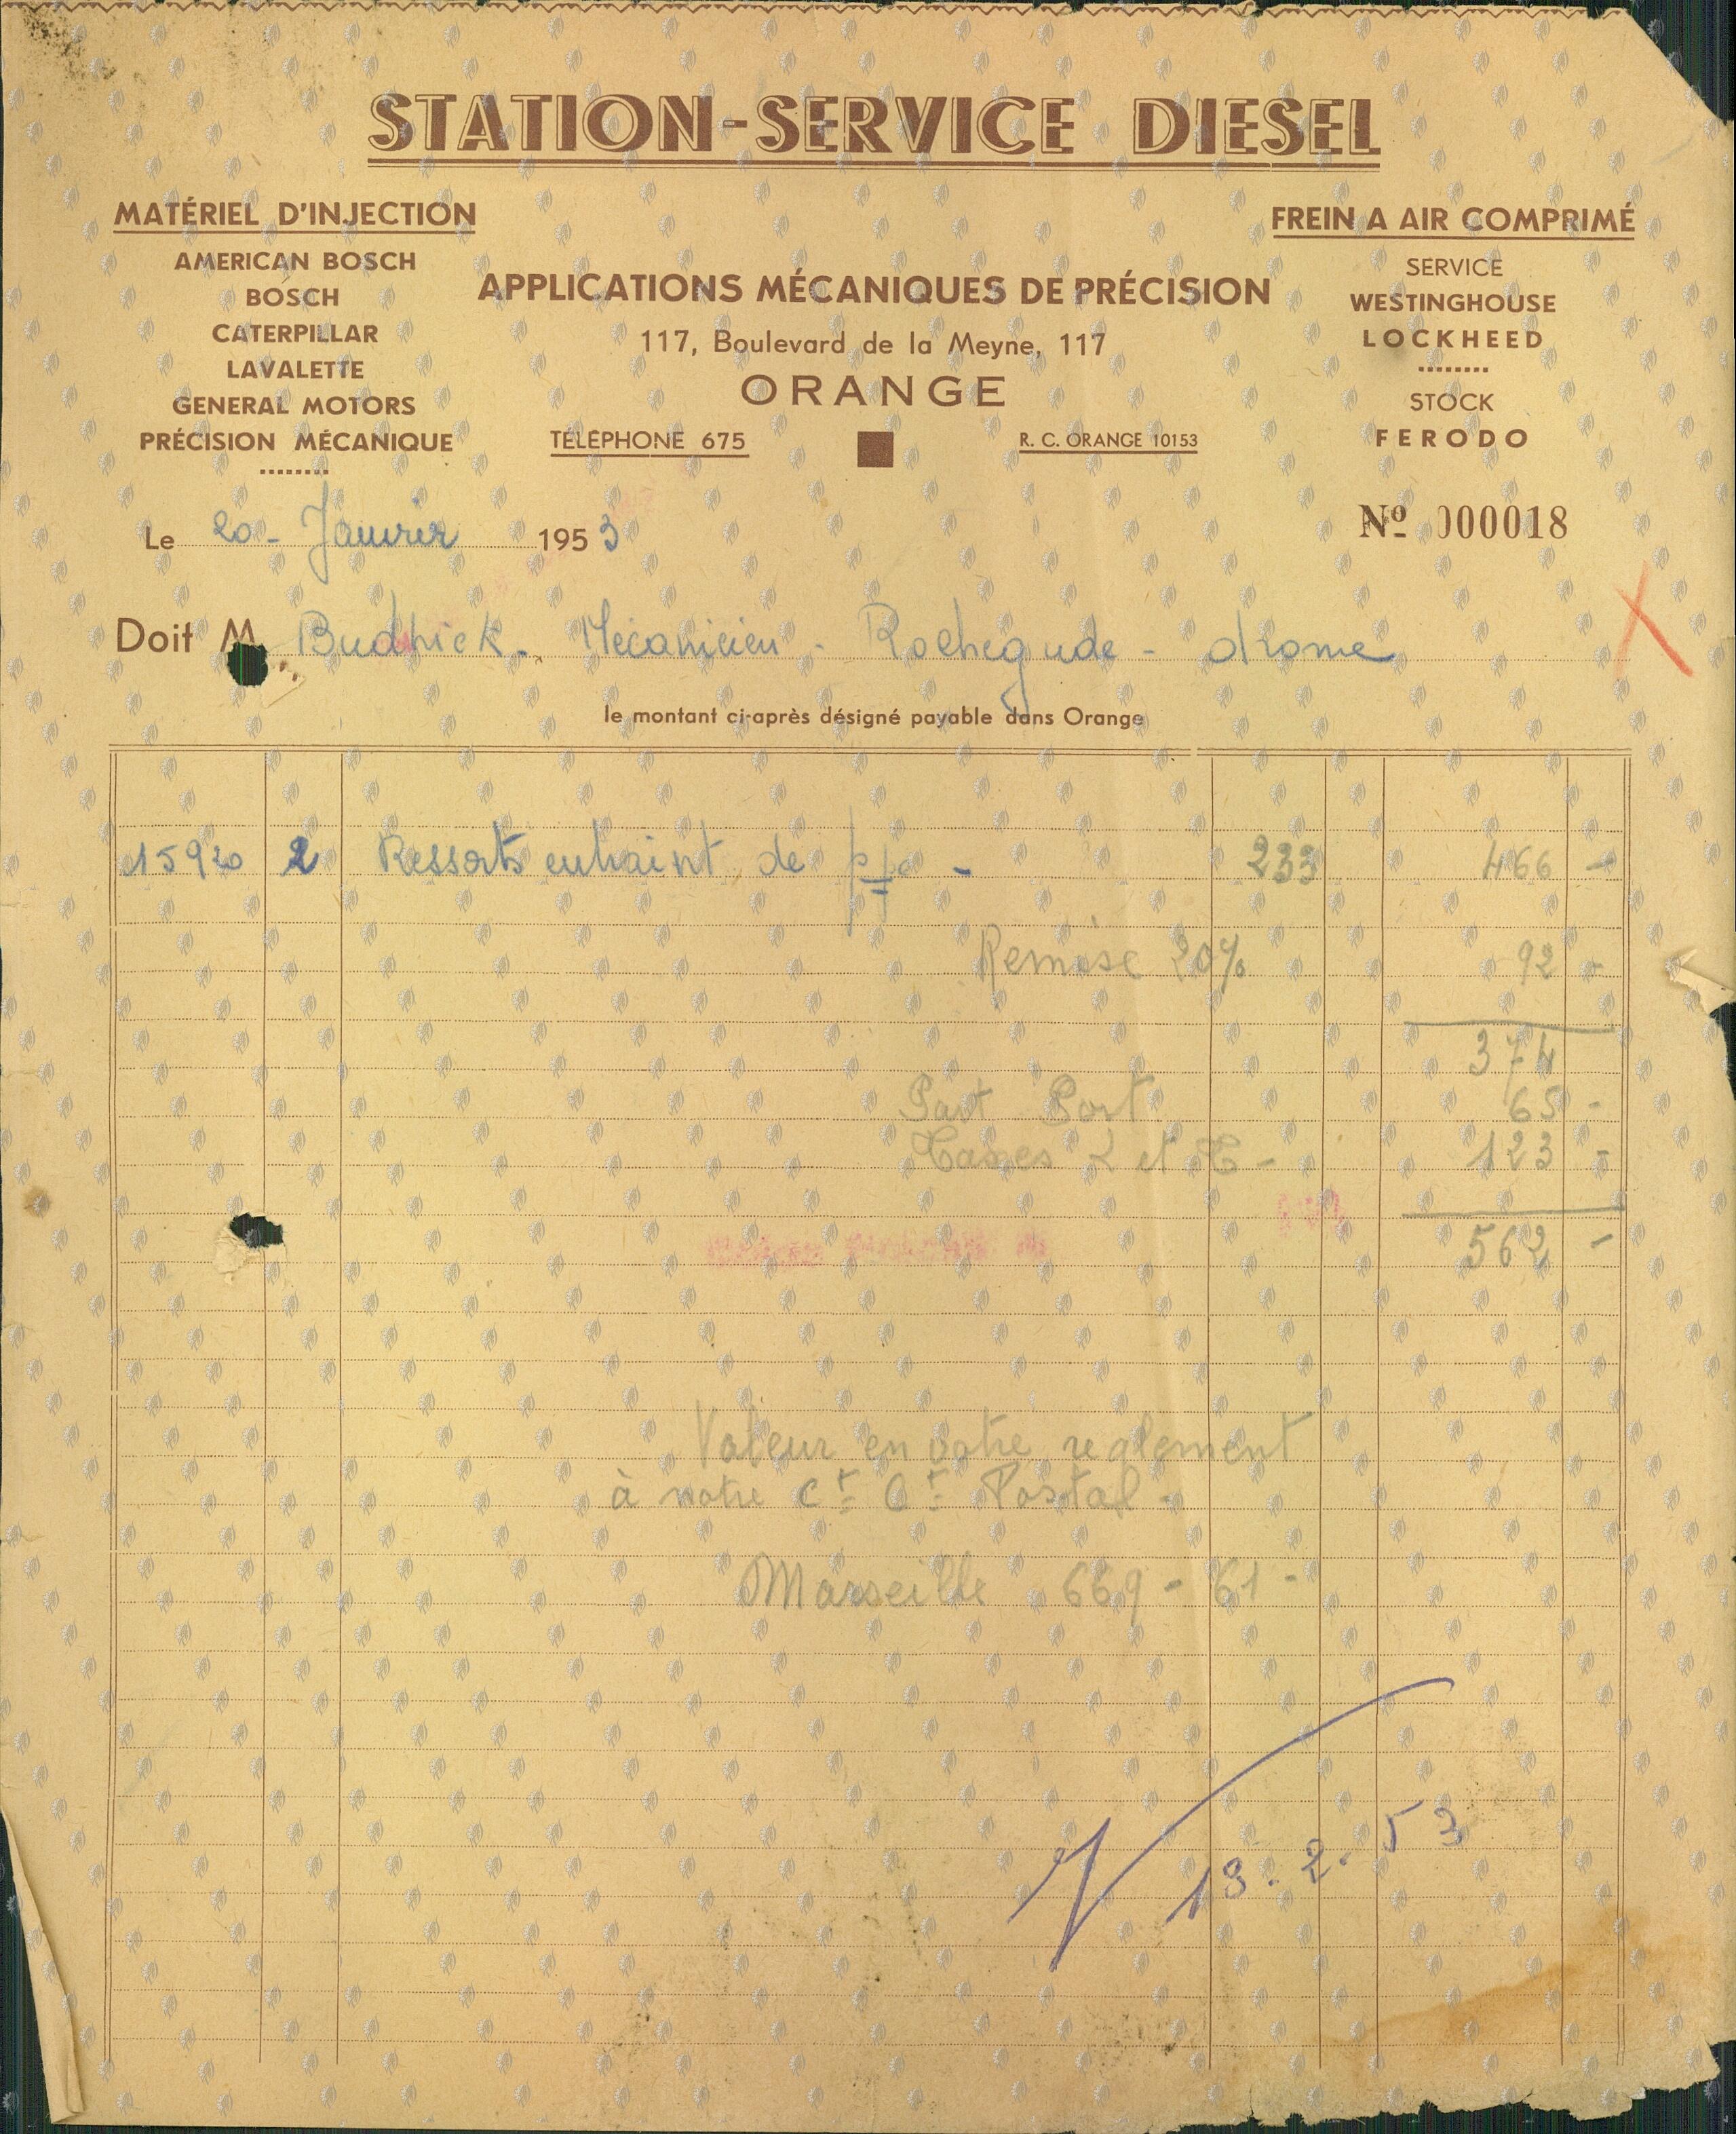 STATION-SERVICE DIESEL
MATÉRIEL D'INJECTION
AMERICAN BOSCH
BOSCH
CATERPILLAR
LAVALETTE
GENERAL MOTORS
PRÉCISION MÉCANIQUE
APPLICATIONS MÉCANIQUES DE PRÉCISION
117, Boulevard de la Meyne, 117
ORANGE
TÉLÉPHONE 675
R. C. ORANGE 10153
FREIN A AIR COMPRIMÉ
SERVICE
WESTINGHOUSE
LOCKHEED
STOCK
FERODO
Le 20 - Janvier 1953
Nº 000018
Doit M. Budhick - Mécanicien - Rochegude - drome
le montant ci-après désigné payable dans Orange
15920 2 Ressorts entraint de 233 466 -
Remise 20% 92 -
374
Part Port 65 -
Taxes L et T - 123 -
562 -
Valeur en votre reglement
à notre Ct Ct Postal -
Marseille 669 - 61 -
13. 2. 53